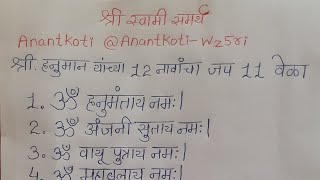 श्री स्वामी समर्थ
Anantkoti @Anantkoti-wz5ri
श्री. हनुमान यांच्या 12 नावांचा जप 11 वेळा
1. ॐ हनुमंताय नमः।
2. ॐ अंजनी सुताय नमः।
3. ॐ वायू पुत्राय नमः।
4. ॐ महाबलाय नमः।